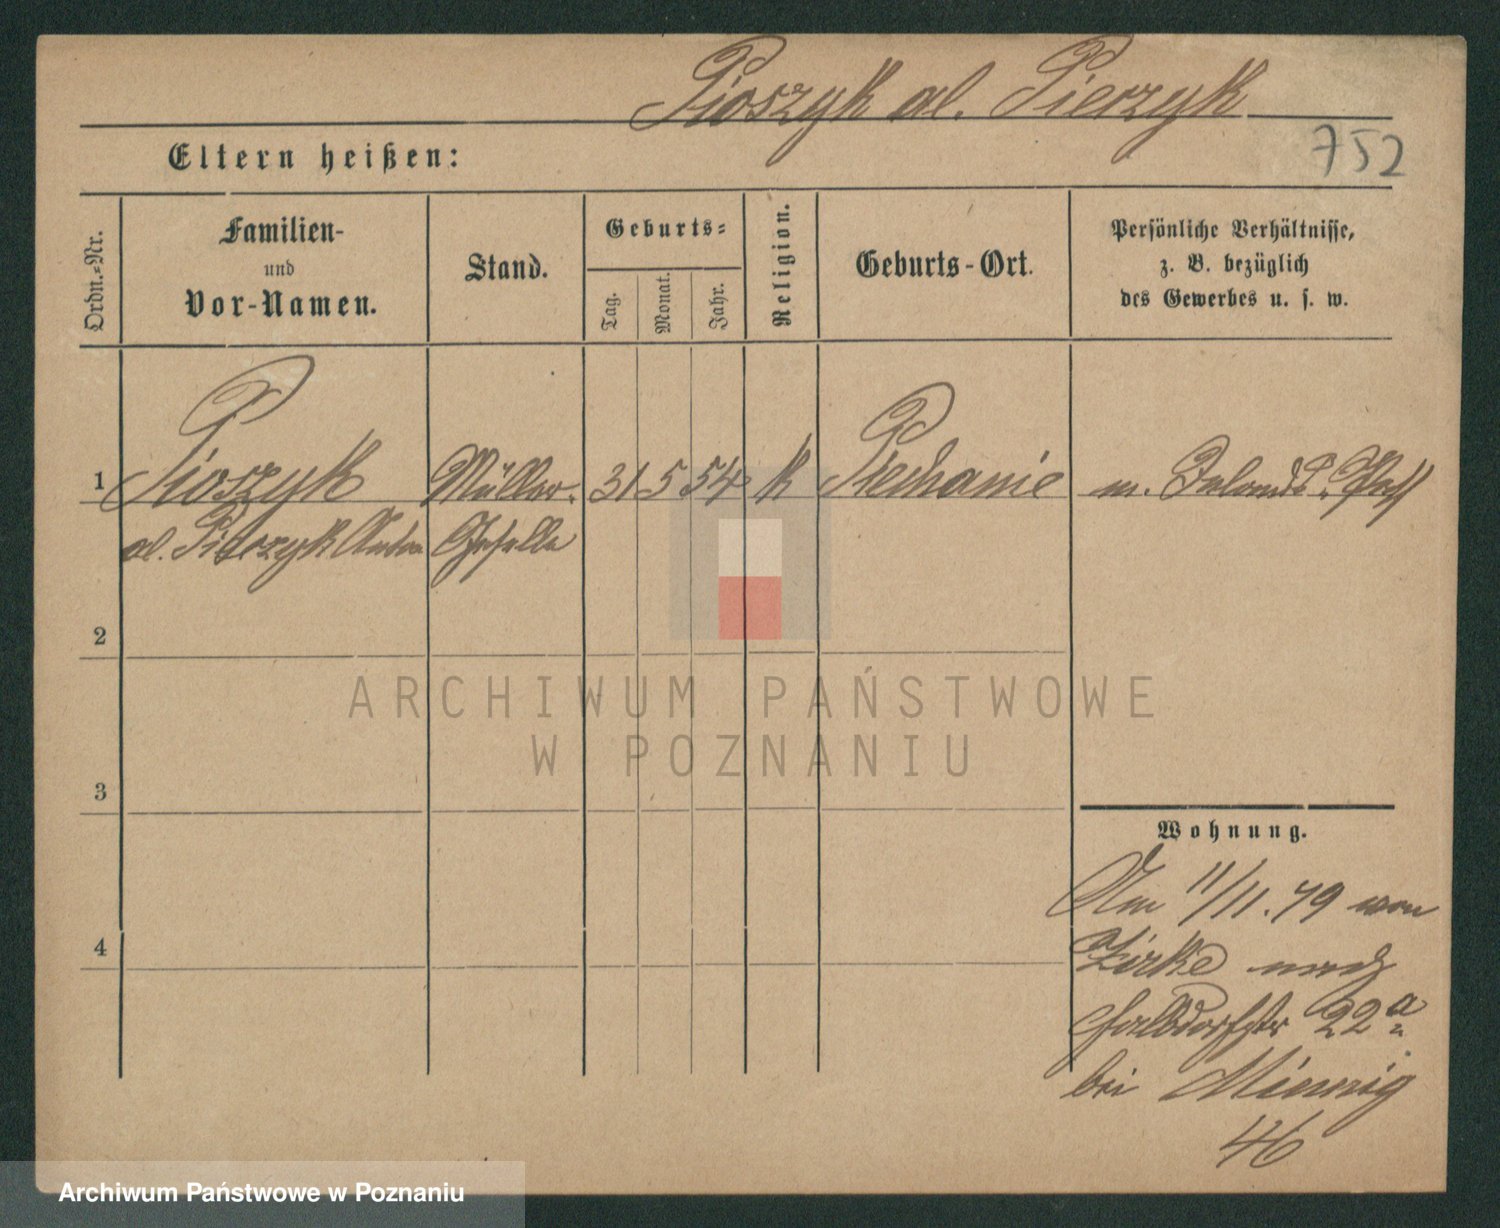 Pioszyk al. Pierzyk
752
Eltern heißen:
Ordn.=Nr.
Familien-
und
Vor-Namen.
Stand.
Geburts=
Tag.
Monat.
Jahr.
Religion.
Geburts-Ort.
Persönliche Verhältnisse,
z. B. bezüglich
des Gewerbes u. s. w.
1 Pioszyk Müller- 31 5 54 k Piechanie m. Inlands-Paß
al. Pierzyk Anton Geselle
2
3
4
Wohnung.
Am 11/11.79 von
Zirke nach
Halbdorfstr 22a
bei Minnig
46
ARCHIWUM PAŃSTWOWE
W POZNANIU
Archiwum Państwowe w Poznaniu